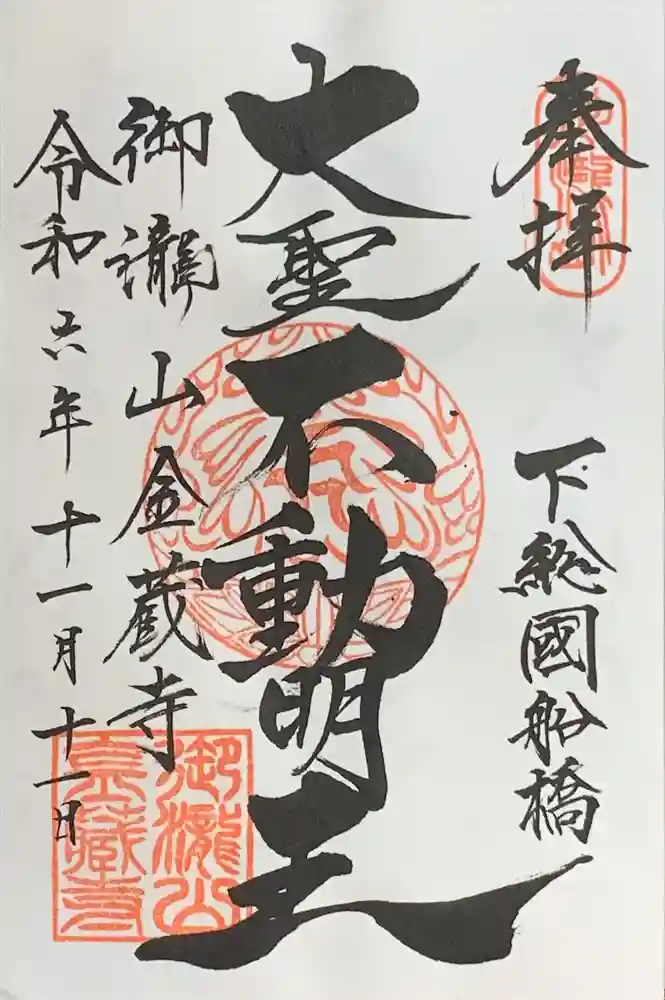 奉拝
下総國船橋
大聖不動明王
御瀧山金蔵寺
令和六年十一月十一日
御瀧山
金蔵寺